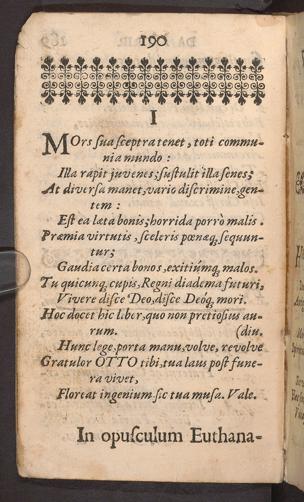 190
I
MOrs sua sceptra tenet, toti commu-
nia mundo:
Illa rapit juvenes; sustulit illa senes;
At diversa manet, vario discrimine, gen-
tem:
Est ea læta bonis; horrida porrò malis.
Præmia virtutis, sceleris pœnæq; sequun-
tur;
Gaudia certa bonos, exitiúmq; malos.
Tu quicunq; cupis, Regni diadema futuri,
Vivere disce Deo, disce Deóq; mori.
Hoc docet hic liber, quo non pretiosius au-
rum. (diu.
Hunc lege, porta manu, volve, revolve
Gratulor OTTO tibi, tua laus post fune-
ra vivet,
Floreat ingenium sic tua musa. Vale.
In opusculum Euthana-